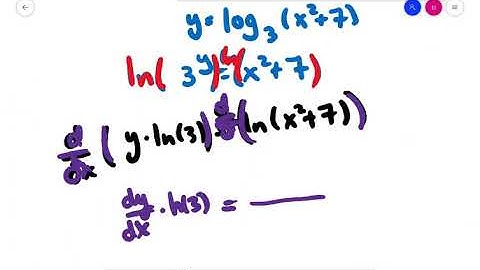 y = log₃(x²+7)
ln(3^y) = ln(x²+7)
d/dx(y·ln(3)) = d/dx(ln(x²+7))
dy/dx · ln(3) = ____